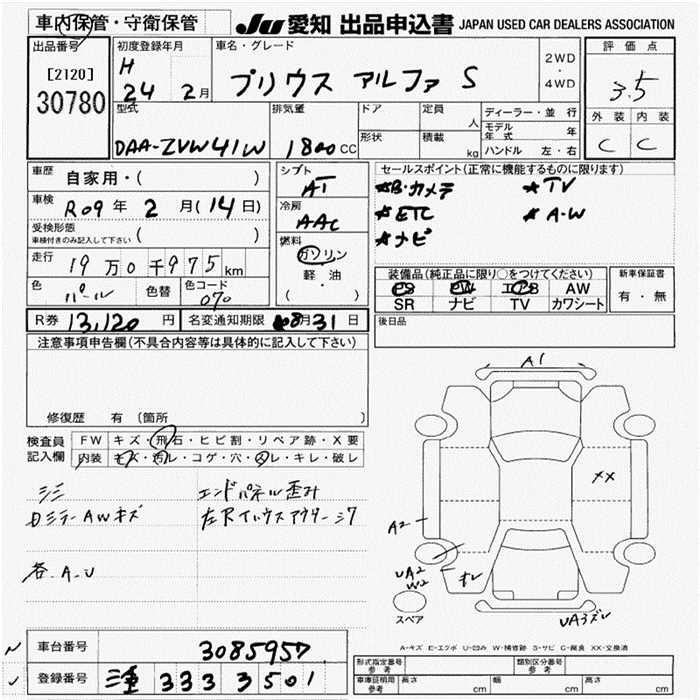 車内保管・守衛保管
JU 愛知 出品申込書 JAPAN USED CAR DEALERS ASSOCIATION
出品番号
[2120]
30780
初度登録年月
H
24 2月
車名・グレード
プリウス アルファ S
2WD
・
4WD
評価点
3.5
外装 内装
C C
型式
DAA-ZVW41W
排気量
1800CC
ドア
形状
定員
人
積載
kg
ディーラー・並行
モデル年式 年
ハンドル 左・右
車歴 自家用・( )
車検 R09年 2月(14日)
受検形態
車検付きのみ記入して下さい ( )
走行 19万0千975km
色 パール 色替 色コード 070
シフト
AT
冷房
AAC
燃料
ガソリン
軽・油
( )
セールスポイント(正常に機能するものに限ります)
★B・カメラ ★TV
★ETC ★A・W
★ナビ
装備品(純正品に限り○をつけてください)
PS PW エアB AW
SR ナビ TV カワシート
新車保証書
有・無
R券 13,120 円 名変通知期限 08月31日
後日品
注意事項申告欄(不具合内容等は具体的に記入して下さい)
修復歴 有(箇所 )
検査員
記入欄
FW キズ・飛石・ヒビ割・リペア跡・X要
内装 キズ・汚レ・コゲ・穴・スレ・キレ・破レ
エンドパネル歪み
AWキズ
各A.U
A1
XX
A2
UA2
W2
スペア
UA3ズレ
A-キズ E-エクボ U-凹み W-補修跡 S-サビ C-腐食 XX-交換済
車台番号 3085957
登録番号 三重 333 3501
形式指定番号
参考
類別区分番号
参考
車庫証明用
参考
長さ cm 幅 cm 高さ cm